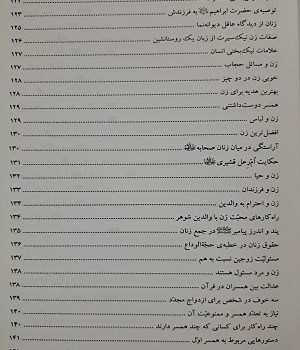 توصیه‌ی حضرت ابراهیم ﷺ به فرزندش ۱۲۳
زنان از دیدگاه عاقل دیوانه‌نما ۱۲۵
صفات زن نیک‌سیرت از زبان یک روستانشین ۱۲۶
علامات نیک‌بختی انسان ۱۲۷
زن و مسائل حجاب ۱۲۷
خوبی زن در دو چیز ۱۲۸
بهترین هدیه برای زن ۱۲۸
همسر دوست‌داشتنی ۱۲۹
زن و لباس ۱۲۹
افضل‌ترین زن ۱۳۰
آراستگی در میان زنان صحابه ۱۳۰
حکایت اُم‌ّرعل قشیری ۱۳۱
زن و حیا ۱۳۲
زن و فرزندان ۱۳۳
زن و احترام به والدین ۱۳۴
راه‌کارهای محبّت زن با والدین شوهر ۱۳۴
پند و اندرز پیامبر ﷺ در جمع زنان ۱۳۵
حقوق زنان در خطبه‌ی حجّةالوداع ۱۳۶
مسئولیّت زوجین نسبت به هم ۱۳۷
زن و مرد مسئول هستند ۱۳۸
عدالت بین همسران در قرآن ۱۳۸
سه خوف در شخص برای ازدواج مجدّد ۱۳۹
نیاز به تعداد همسر و ممنوعیّت آن ۱۴۰
چند راه‌کار برای کسانی که چند همسر دارند ۱۴۰
دستورهایی مربوط به همسر اوّل ۱۴۱